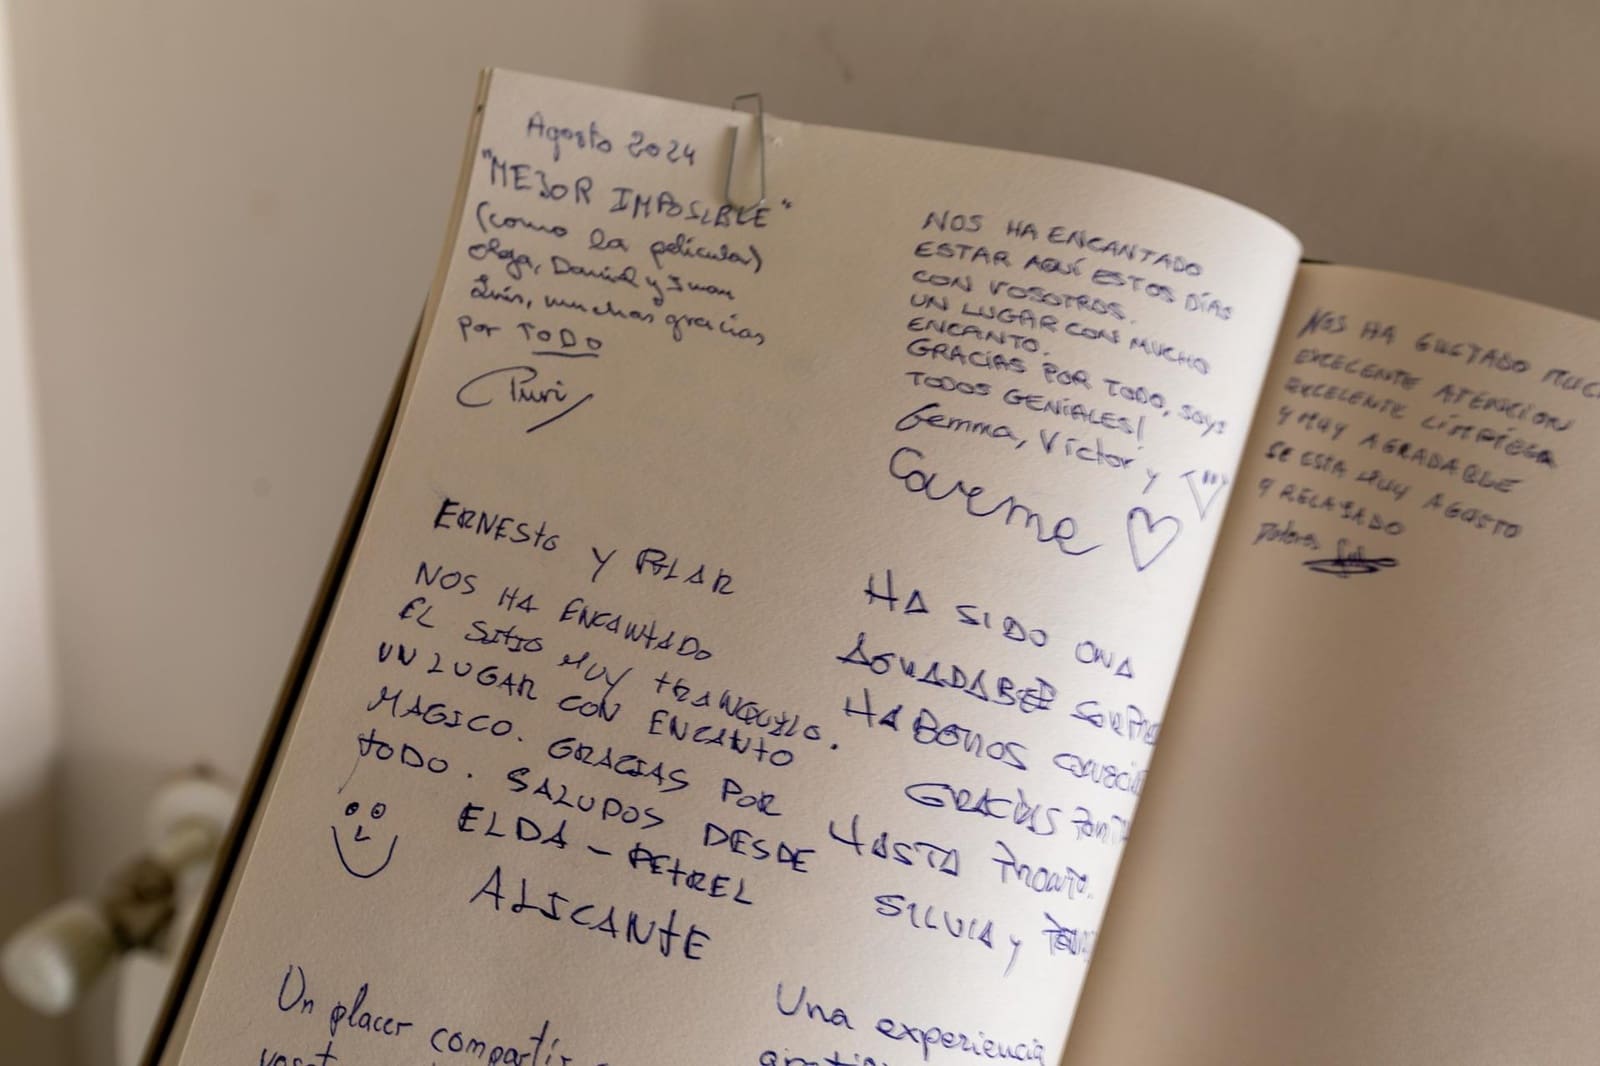 Agosto 2024
"MEJOR IMPOSIBLE"
(como la película)
Olga, Daniel y Juan
Luis, muchas gracias
por TODO
Puri
ERNESto Y PILAR
NOS HA ENCANTADO
EL SitIO MUY tRANQUILO.
UN LUGAR CON ENCANTO
MAGICO. GRACIAS POR
tODO. SALUDOS DESDE
ELDA - PEtREL
ALICANtE
Un placer compartir
NOS HA ENCANTADO
ESTAR AQUÍ ESTOS DÍAS
CON VOSOTROS.
UN LUGAR CON MUCHO
ENCANTO.
GRACIAS POR TODO, SOYS
TODOS GENIALES!
Gemma, Víctor y
HA SIDO UNA
AGRADABLE
HABEROS
GRACIAS POR
HASTA PRONTO.
SILVIA y
Una experiencia
NOS HA GUSTADO
EXCELENTE ATENCION
EXCELENTE LIMPIEZA
Y MUY AGRADABLE
SE ESTA MUY AGUSTO
Y RELAJADO
Dolores